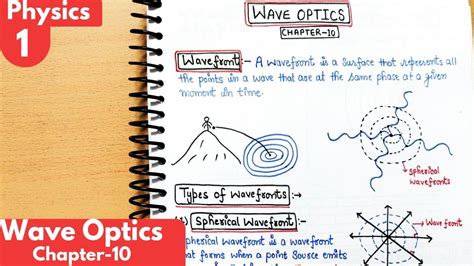 Physics
1
WAVE OPTICS
CHAPTER-10
Wavefront:- A wavefront is a surface that represents all
the points in a wave that are at the same phase at a given
moment in time.
spherical
wavefronts
Types of Wavefronts:-
Spherical Wavefront
Wavefront
Spherical wavefront is a wavefront
that forms when a point source emits
Wave Optics
Chapter-10